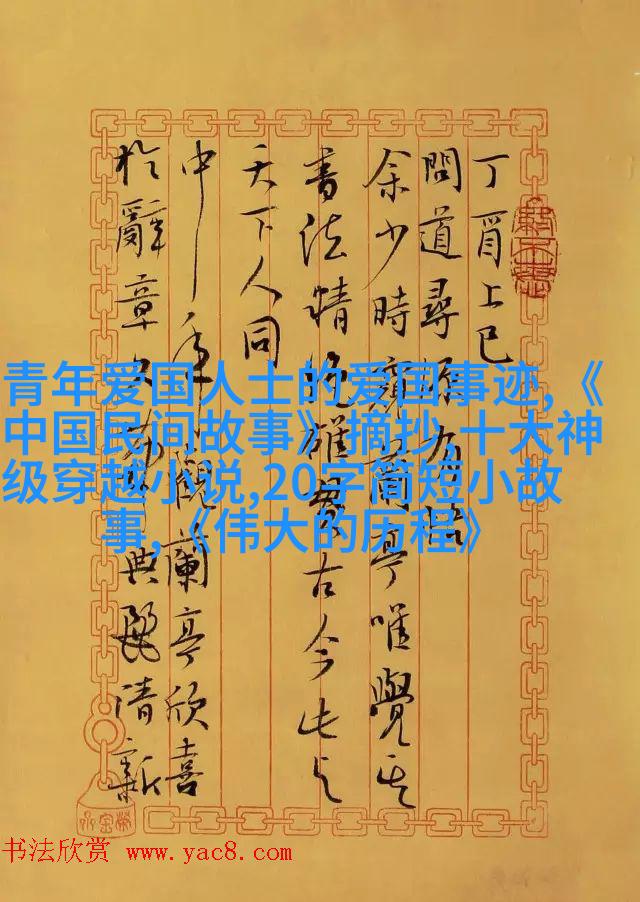 丁酉上巳
問道尋
余少時蘭亭唯覺其
書法精絕雄古今此与
天下人同
中年觀蘭亭欣喜
於辭章典麗清新
青年爱国人士的爱国事迹,《
中国民间故事》摘抄,十大神
级穿越小说,20字简短小故
事,《伟大的历程》
书法欣赏 www.yac8.com